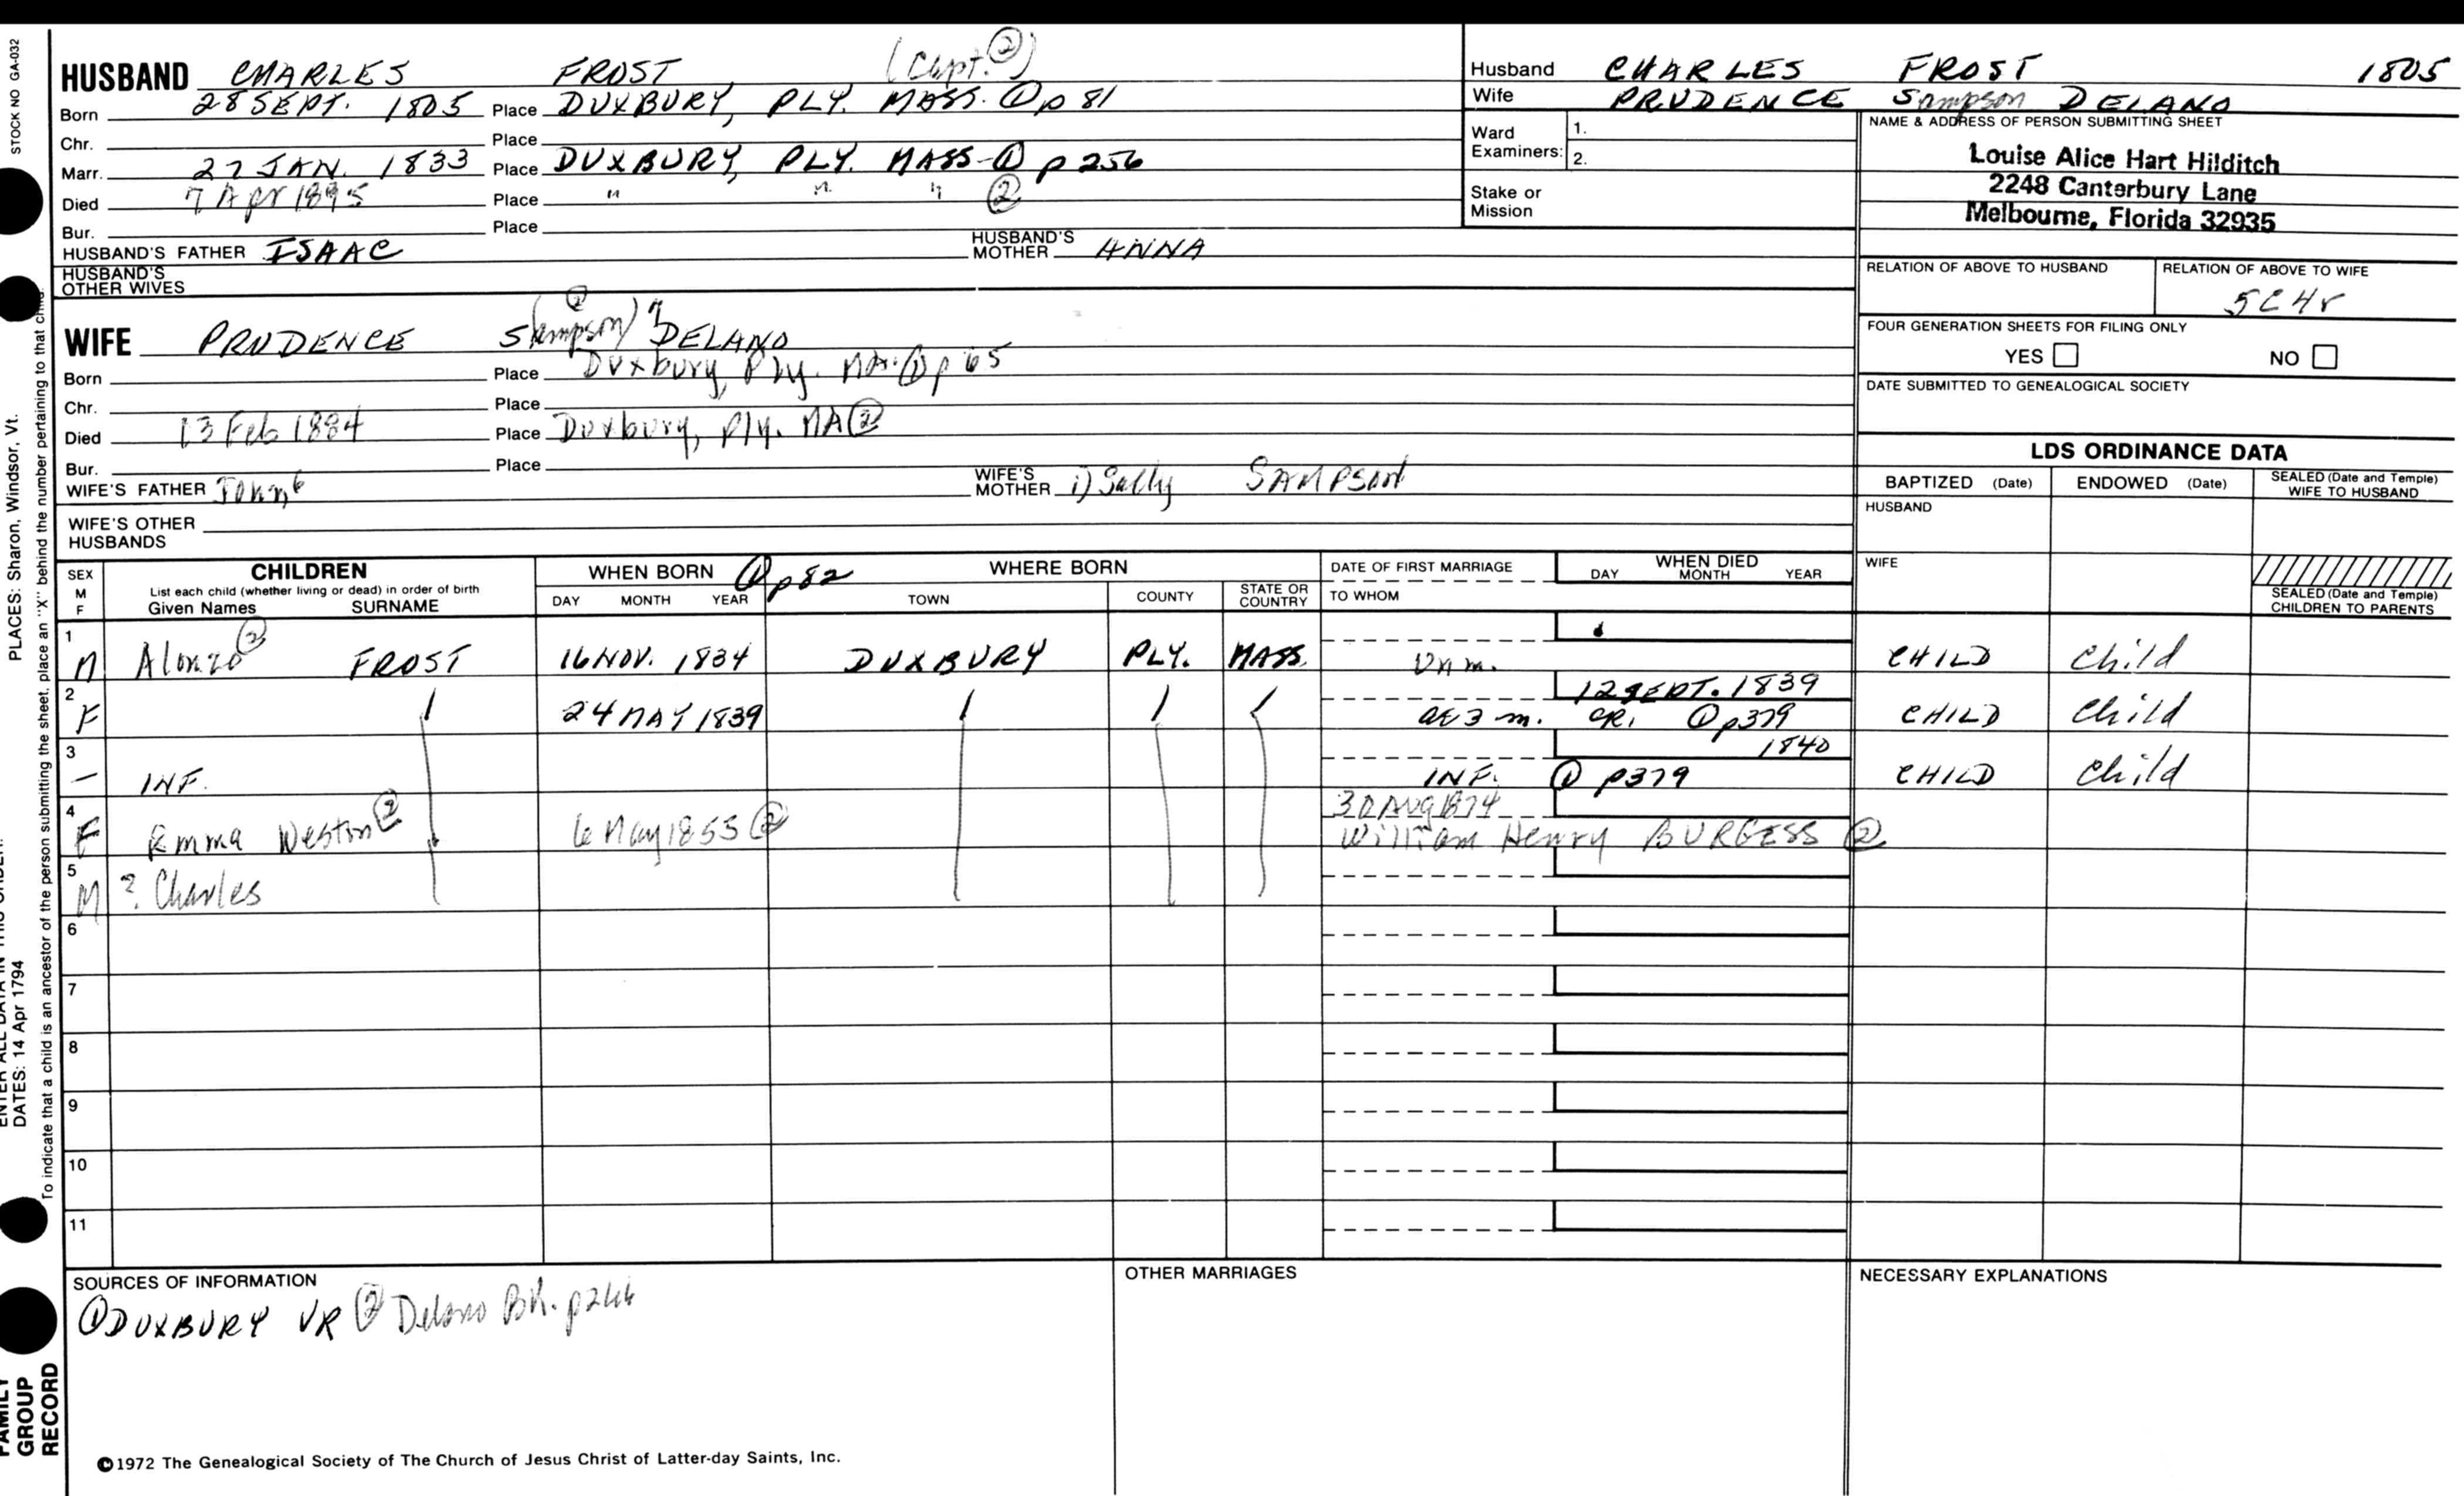 STOCK NO GA-032
HUSBAND CHARLES FROST (Capt. ②)
Born 28 SEPT. 1805 Place DUXBURY, PLY. MASS. ① p 81
Chr. Place
Marr. 27 JAN. 1833 Place DUXBURY, PLY. MASS-① p 256
Died 7 Apr 1895 Place " " " ②
Bur. Place
HUSBAND'S FATHER ISAAC HUSBAND'S MOTHER ANNA
HUSBAND'S OTHER WIVES
Husband CHARLES FROST 1805
Wife PRUDENCE Sampson DELANO
Ward Examiners: 1.
2.
Stake or Mission
NAME & ADDRESS OF PERSON SUBMITTING SHEET
Louise Alice Hart Hilditch
2248 Canterbury Lane
Melbourne, Florida 32935
RELATION OF ABOVE TO HUSBAND RELATION OF ABOVE TO WIFE
5C4r
FOUR GENERATION SHEETS FOR FILING ONLY
YES NO
DATE SUBMITTED TO GENEALOGICAL SOCIETY
WIFE PRUDENCE S(ampson) ② 7 DELANO
Born Place Duxbury, Ply. MA. ① p 65
Chr. Place
Died 13 Feb 1884 Place Duxbury, Ply. MA ②
Bur. Place
WIFE'S FATHER John 6 WIFE'S MOTHER 1) Sally SAMPSON
WIFE'S OTHER HUSBANDS
LDS ORDINANCE DATA
BAPTIZED (Date) ENDOWED (Date) SEALED (Date and Temple) WIFE TO HUSBAND
HUSBAND
WIFE
SEALED (Date and Temple) CHILDREN TO PARENTS
SEX M F CHILDREN WHEN BORN ① p82 WHERE BORN DATE OF FIRST MARRIAGE WHEN DIED
List each child (whether living or dead) in order of birth
Given Names SURNAME DAY MONTH YEAR TOWN COUNTY STATE OR COUNTRY TO WHOM DAY MONTH YEAR
1 M Alonzo ② FROST 16 NOV. 1834 DUXBURY PLY. MASS. Unm. CHILD Child
12 SEPT. 1839
2 F 24 MAY 1839 ae 3 m. CR. ① p379 CHILD Child
1840
3 — INF. INF. ① p379 CHILD Child
30 Aug 1874
4 F Emma Weston ② 6 May 1853 ② William Henry BURGESS ②
5 M ? Charles
6
7
8
9
10
11
SOURCES OF INFORMATION
① DUXBURY VR ② Delano Bk. p246
OTHER MARRIAGES
NECESSARY EXPLANATIONS
©1972 The Genealogical Society of The Church of Jesus Christ of Latter-day Saints, Inc.
PLACES: Sharon, Windsor, Vt.
DATES: 14 Apr 1794
To indicate that a child is an ancestor of the person submitting the sheet, place an "X" behind the number pertaining to that child.
FAMILY
GROUP
RECORD